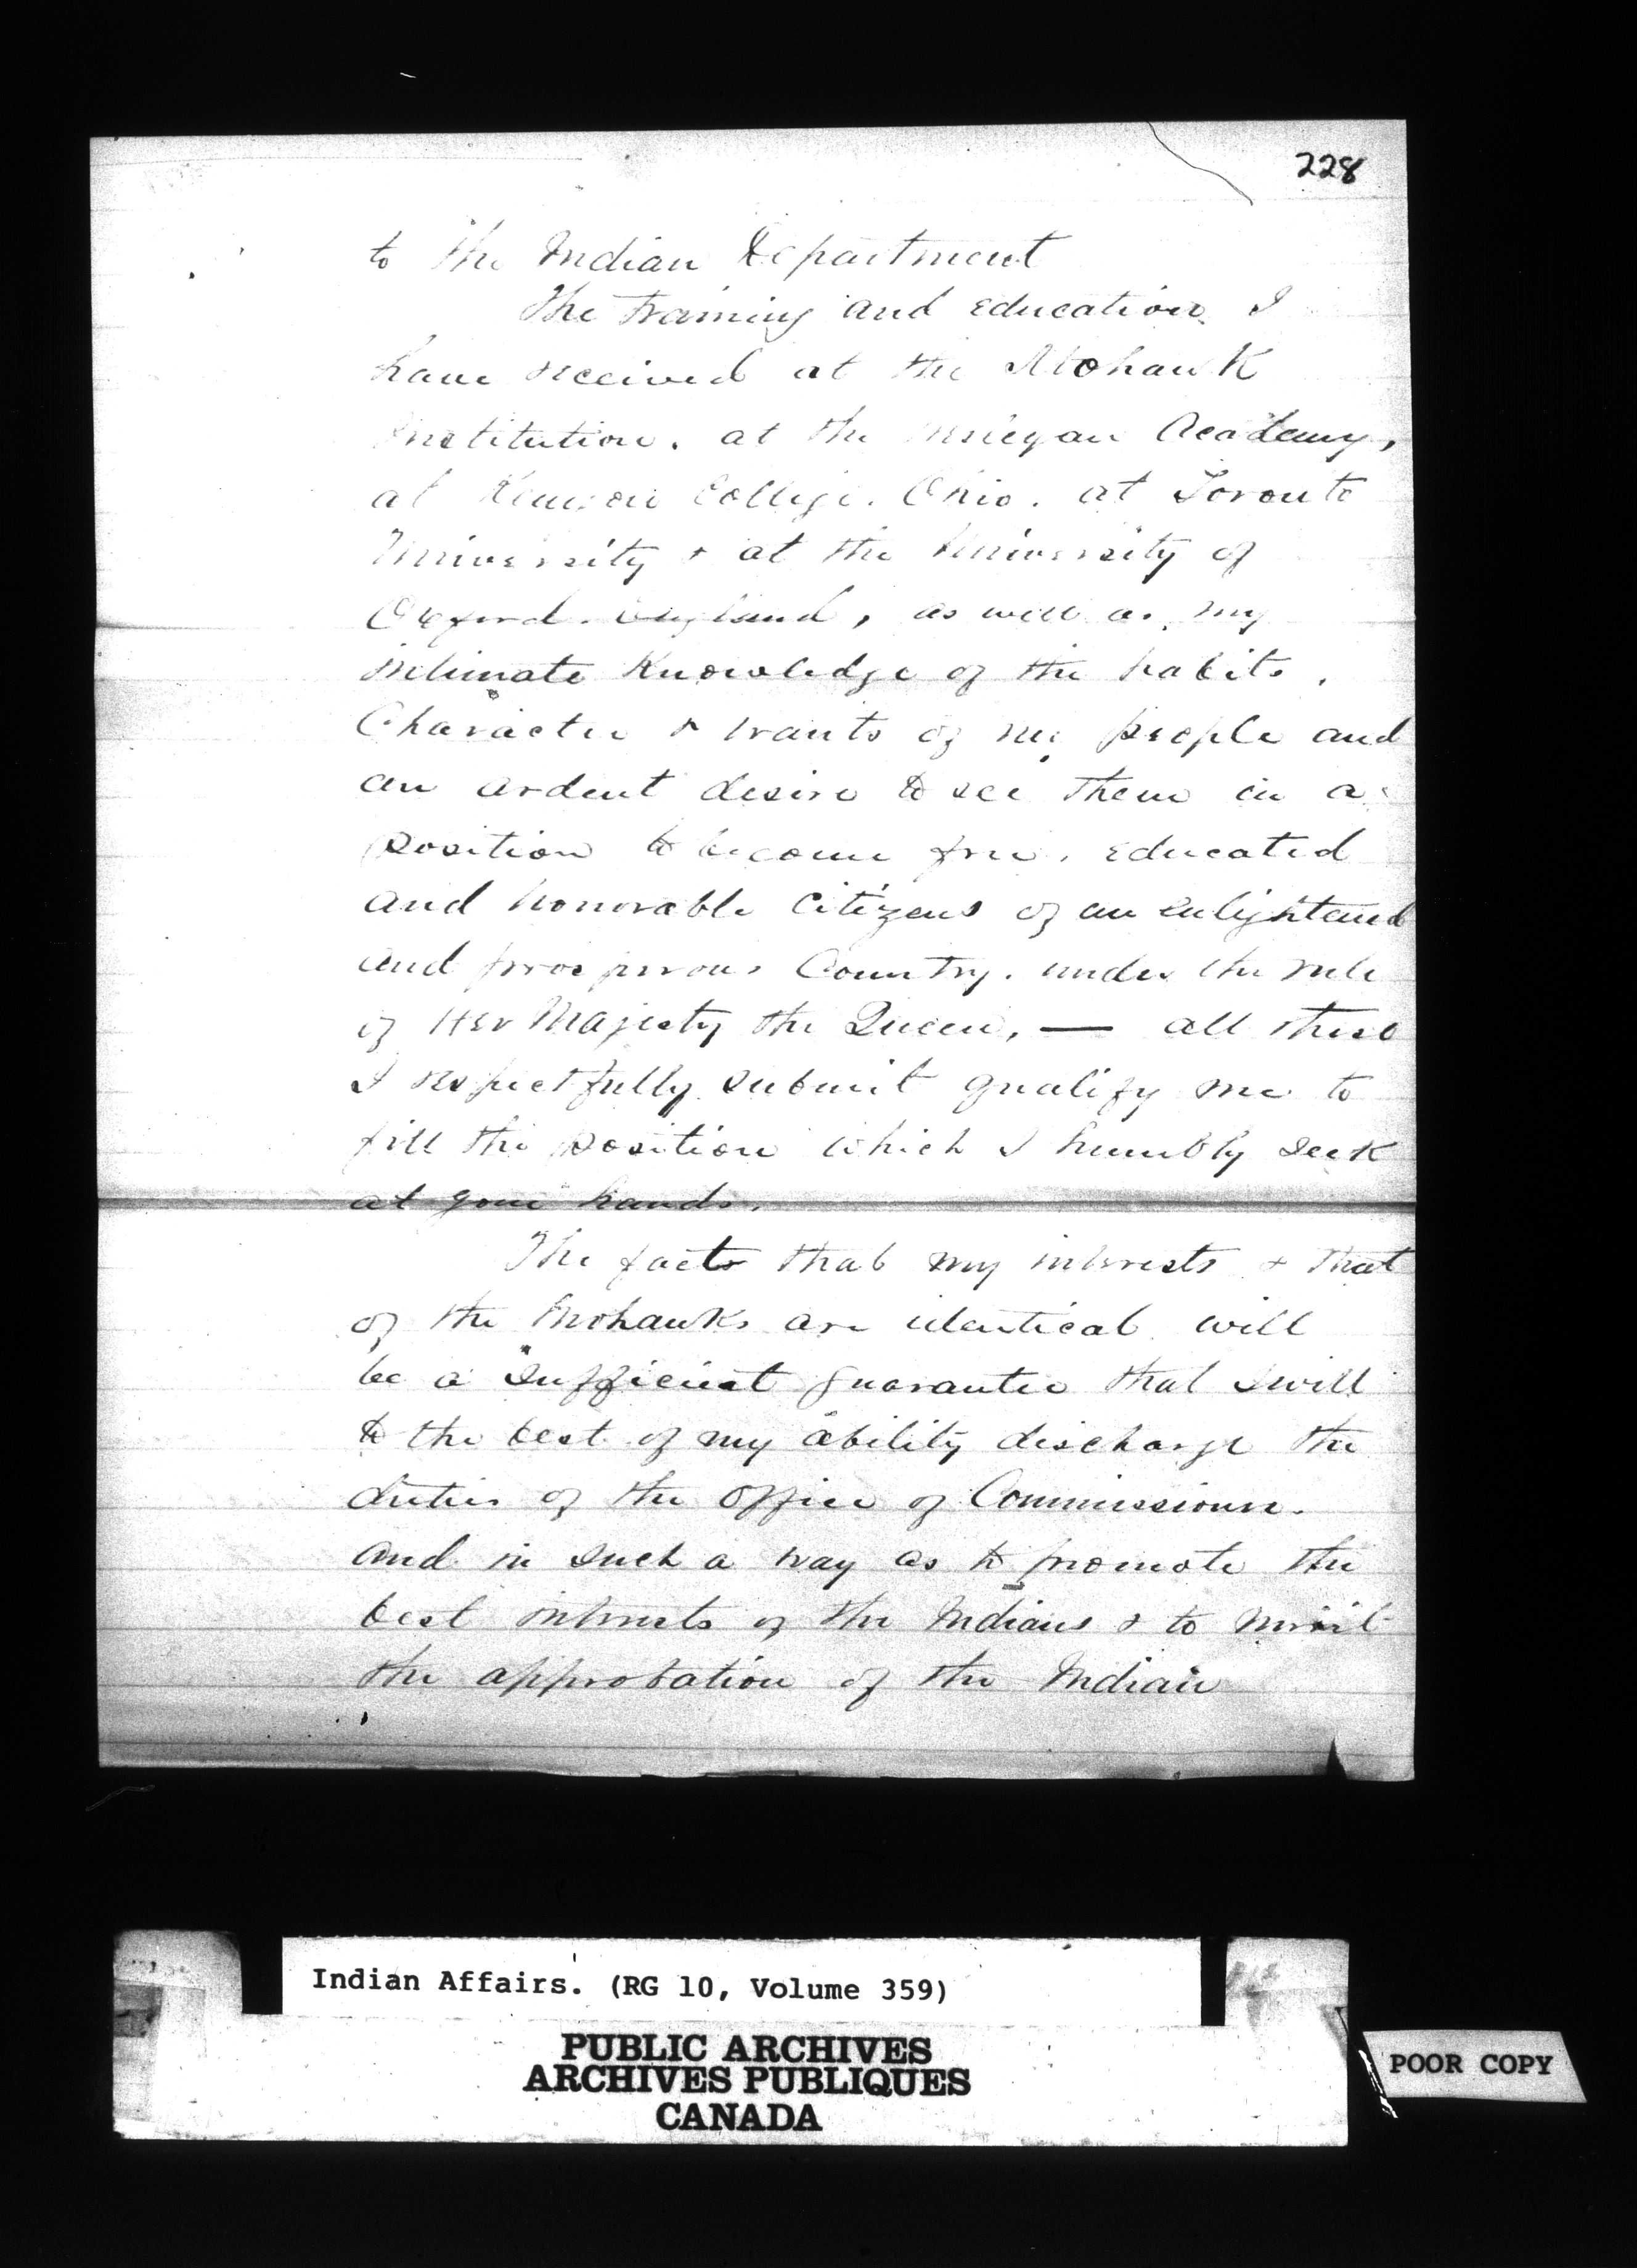 228
to the Indian Department
The training and education I
have received at the Mohawk
Institution. at the Wesleyan Academy,
at Kenyon College. Ohio. at Toronto
University & at the University of
Oxford. England, as well as my
intimate Knowledge of the habits,
Character & wants of my people and
an ardent desire to see them in a
position to become free, educated
and honorable Citizens of an enlightened
and prosperous Country. under the rule
of Her Majesty the Queen, — all these
I respectfully submit qualify me to
fill the position which I humbly seek
at your hands.
The facts that my interests & that
of the Mohawks are identical will
be a sufficient guarantee that I will
to the best of my ability discharge the
duties of the office of Commissioner.
and in such a way as to promote the
best interests of the Indians & to merit
the approbation of the Indian
Indian Affairs. (RG 10, Volume 359)
PUBLIC ARCHIVES
ARCHIVES PUBLIQUES
CANADA
POOR COPY